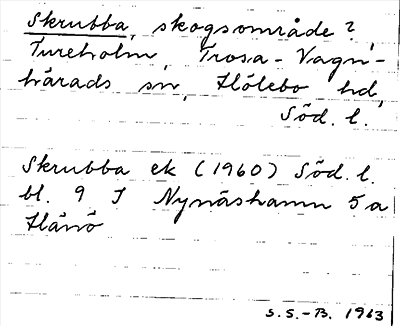 Skrubba, skogsområde?,
Tureholm, Trosa-Vagn-
härads sn, Hölebo hd,
Söd. l.
Skrubba ek (1960) Söd. l.
bl. 9 I Nynäshamn 5 a
Hånö
S.S.-B. 1963